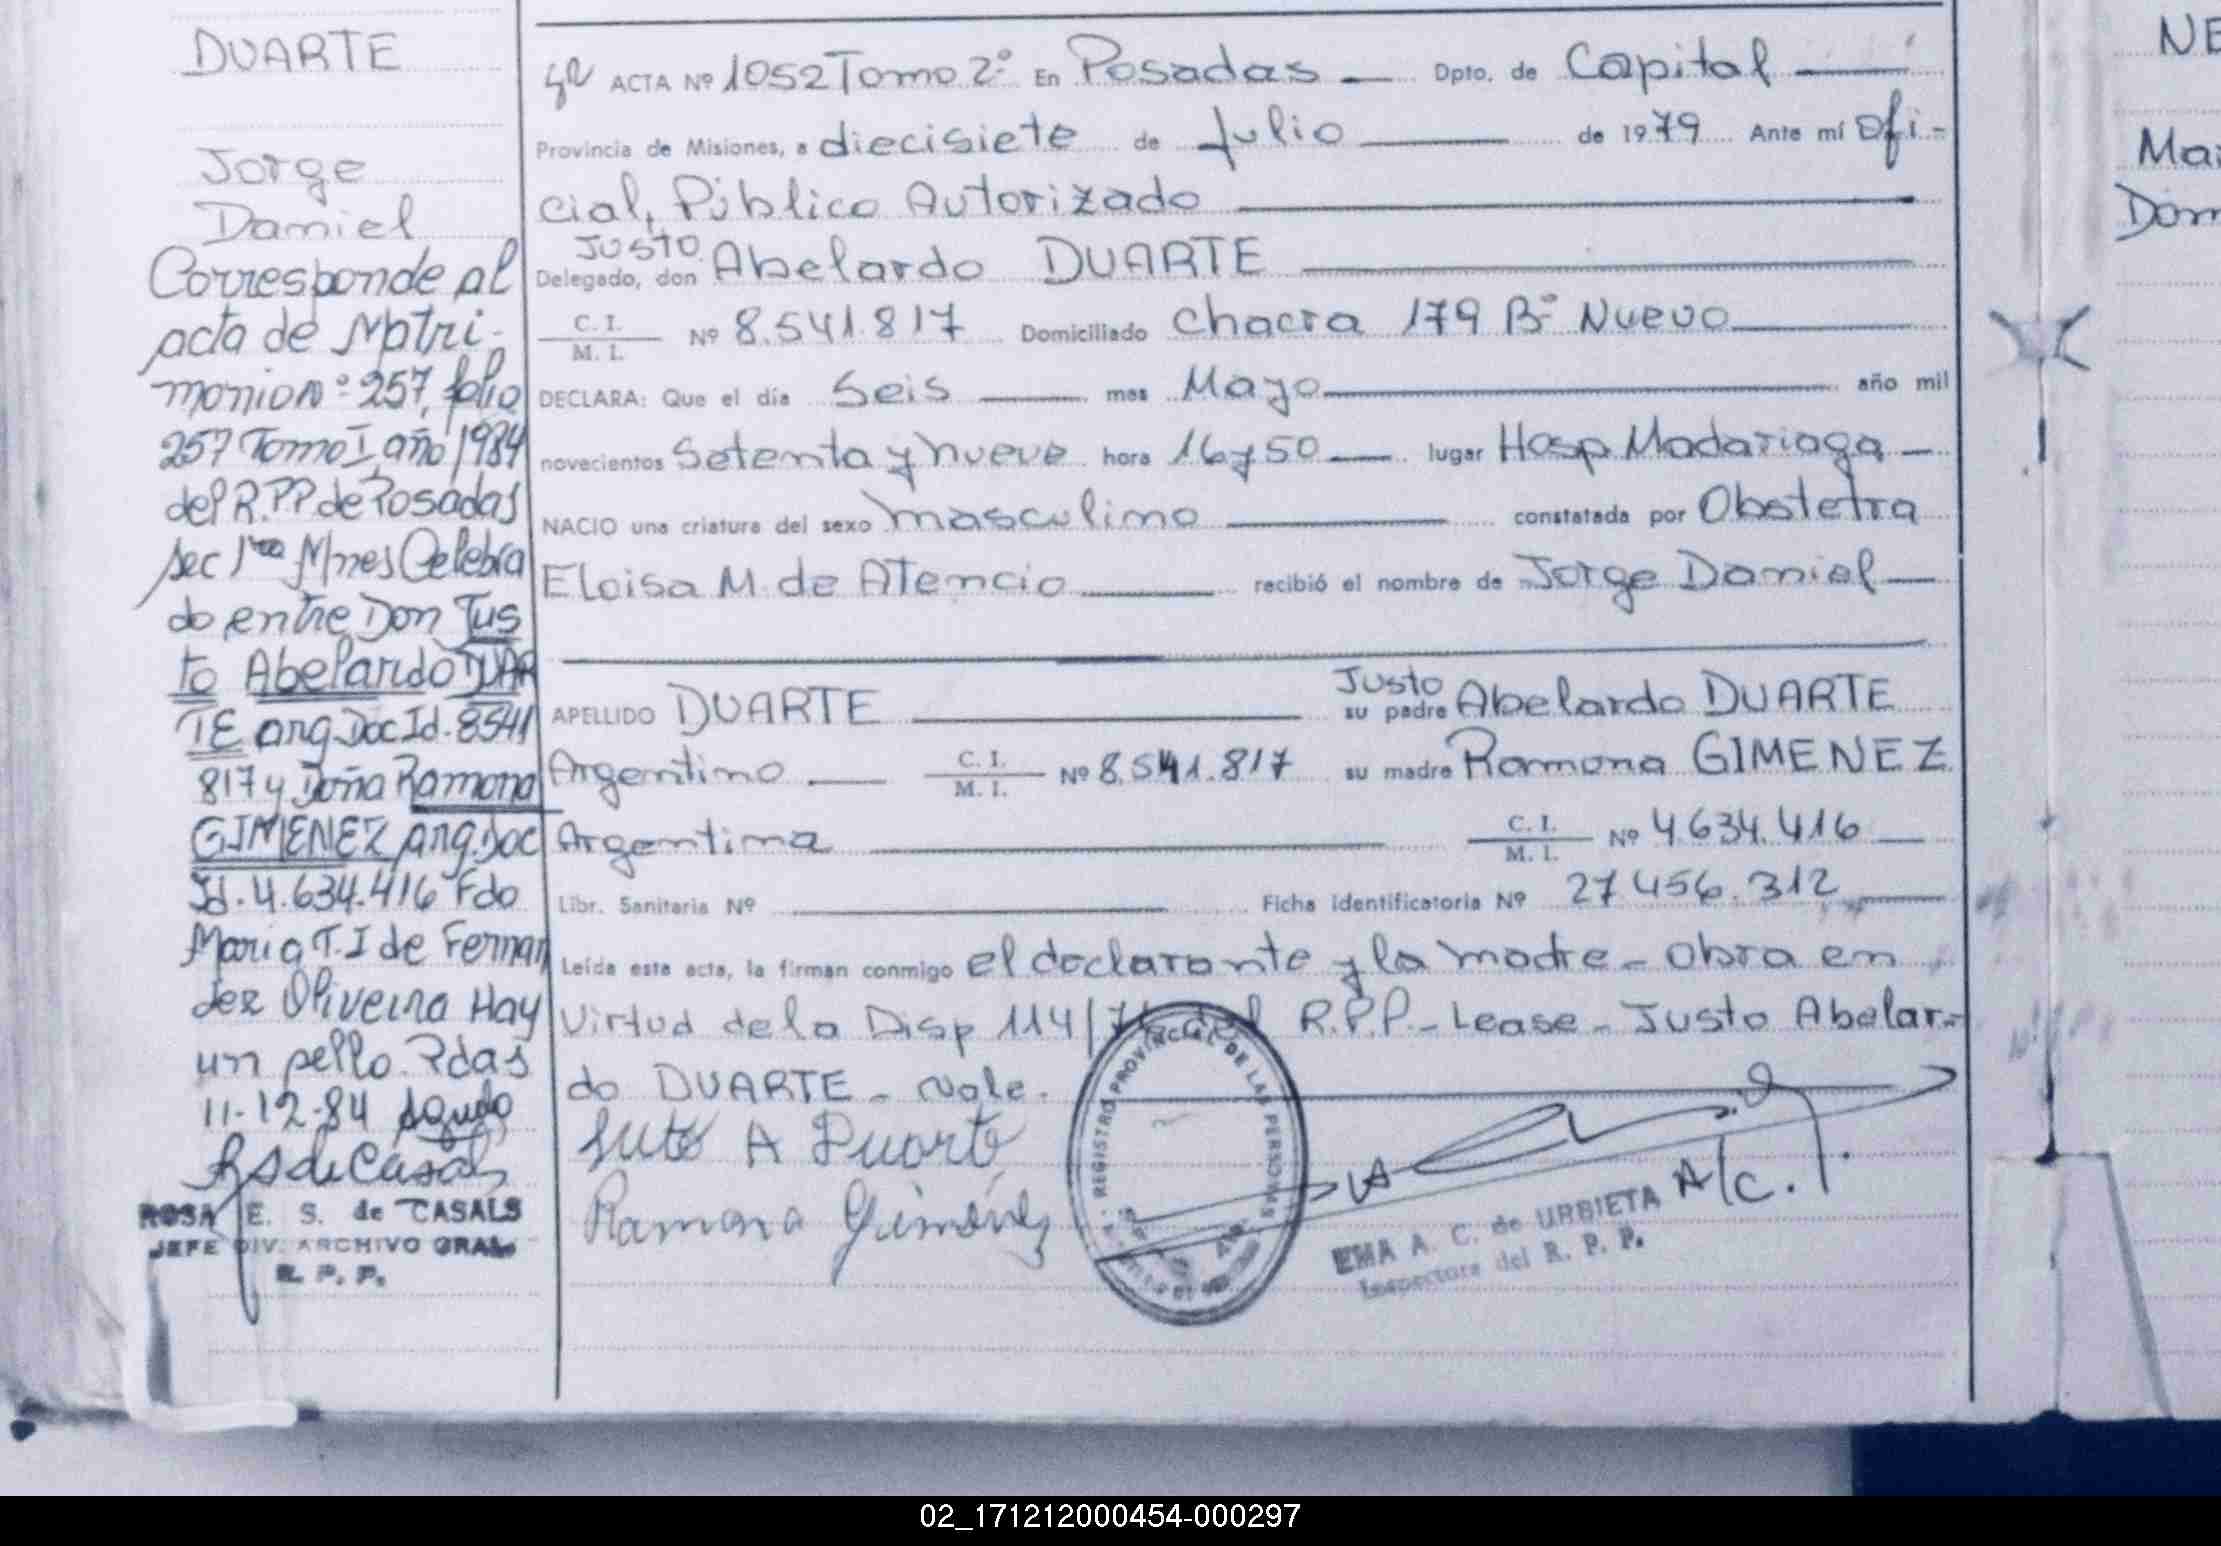 DUARTE
Jorge
Daniel
Corresponde al
acta de Matri-
monio Nº 257, folio
257 Tomo I, año 1984
del R.P.P de Posadas
sec 1ra Mnes Celebra
do entre Don Jus
to Abelardo DUAR
TE arg. Doc Id. 8541
817 y Doña Ramona
GIMENEZ arg. Doc
Id. 4.634.416 Fdo
Maria T. I de Fernan
dez Oliveira Hay
un sello. Pdas
11-12-84
ROSA E. S. de CASALS
JEFE DIV. ARCHIVO GRAL.
R. P. P.
ACTA Nº 1052 Tomo 2º En Posadas — Dpto. de Capital —
Provincia de Misiones, a diecisiete de Julio — de 1979 Ante mí Ofi-
cial, Público Autorizado —
Justo
Delegado, don Abelardo DUARTE —
C. I.
M. I. Nº 8.541.817 Domiciliado Chacra 179 Bº Nuevo —
DECLARA: Que el día Seis — mes Mayo — año mil
novecientos Setenta y nueve hora 16 y 50 — lugar Hosp Madariaga —
NACIO una criatura del sexo masculino — constatada por Obstetra
Eloisa M. de Atencio — recibió el nombre de Jorge Daniel —
APELLIDO DUARTE — Justo
su padre Abelardo DUARTE
Argentino — C. I.
M. I. Nº 8.541.817 su madre Ramona GIMENEZ
Argentina — C. I.
M. I. Nº 4.634.416 —
Libr. Sanitaria Nº — Ficha Identificatoria Nº 27.456.312 —
Leída esta acta, la firman conmigo el declarante y la madre - Obra en
Virtud de la Disp 114/ del R.P.P. - Lease - Justo Abelar-
do DUARTE - Vale.
Justo A Duarte
Ramona Giménez
REGISTRO PROVINCIAL DE LAS PERSONAS
A/C.
EMA A. C. de URBIETA
Inspectora del R. P. P.
NE
Mar
Dom
02_171212000454-000297